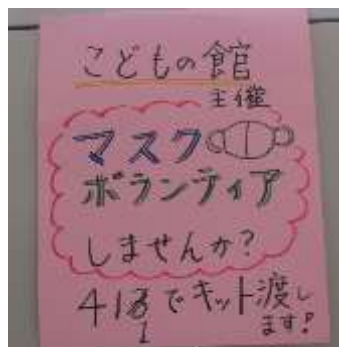 こどもの館
主催
マスク
ボランティア
しませんか?
41でキット渡し
1
ます!